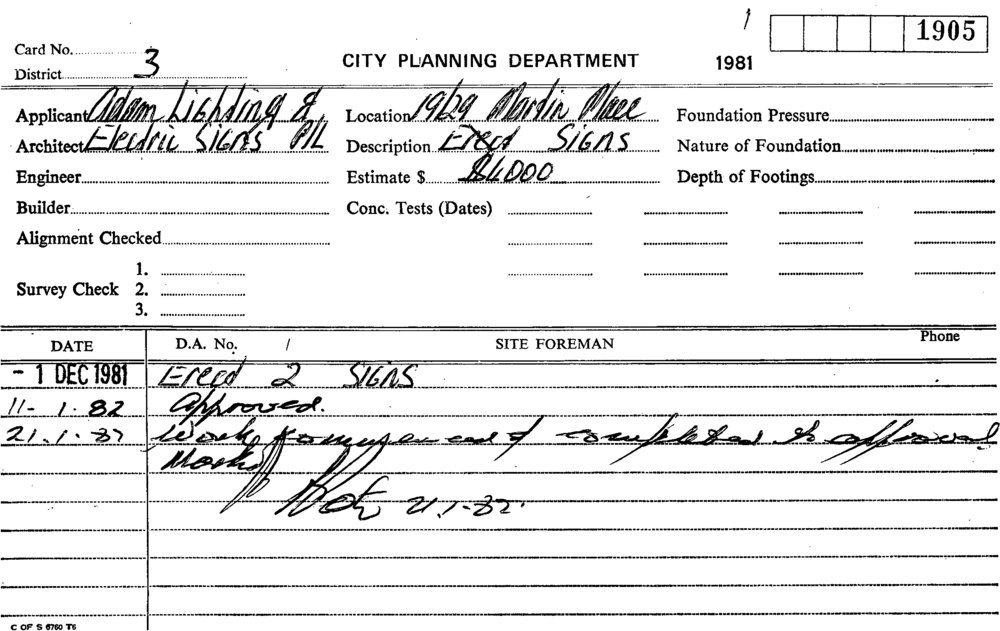 1905
Card No.
District 3
CITY PLANNING DEPARTMENT 1981
Applicant Adam Lighting & Location 19/29 Martin Place Foundation Pressure
Architect Electric Signs P/L Description Erect Signs Nature of Foundation
Engineer Estimate $ $4000 Depth of Footings
Builder Conc. Tests (Dates)
Alignment Checked
1.
Survey Check 2.
3.
DATE D.A. No. / SITE FOREMAN Phone
- 1 DEC 1981 Erect 2 SIGNS
11- 1. 82 Approved.
21.1.82 Work commenced & completed to approval
21.1.82.
C OF S 6760 T6